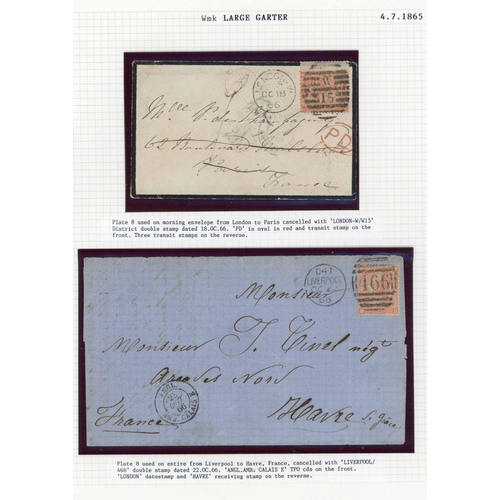 Wmk LARGE GARTER 4.7.1865
LONDON-W
OC 18
66
W
15
Mlle P.
62 Boulevard
Paris
France
PD
Plate 8 used on morning envelope from London to Paris cancelled with 'LONDON-W/W15'
District double stamp dated 18.OC.66. 'PD' in oval in red and transit stamp on the
front. Three transit stamps on the reverse.
D41
LIVERPOOL
66
466
Monsieur
Monsieur J. Tinel négt
Arcades Nord
Havre
France
ANGL.
66
Plate 8 used on entire from Liverpool to Havre, France, cancelled with 'LIVERPOOL/
466' double stamp dated 22.OC.66. 'ANGL.AMB; CALAIS E' TPO cds on the front.
'LONDON' datestamp and 'HAVRE' receiving stamp on the reverse.